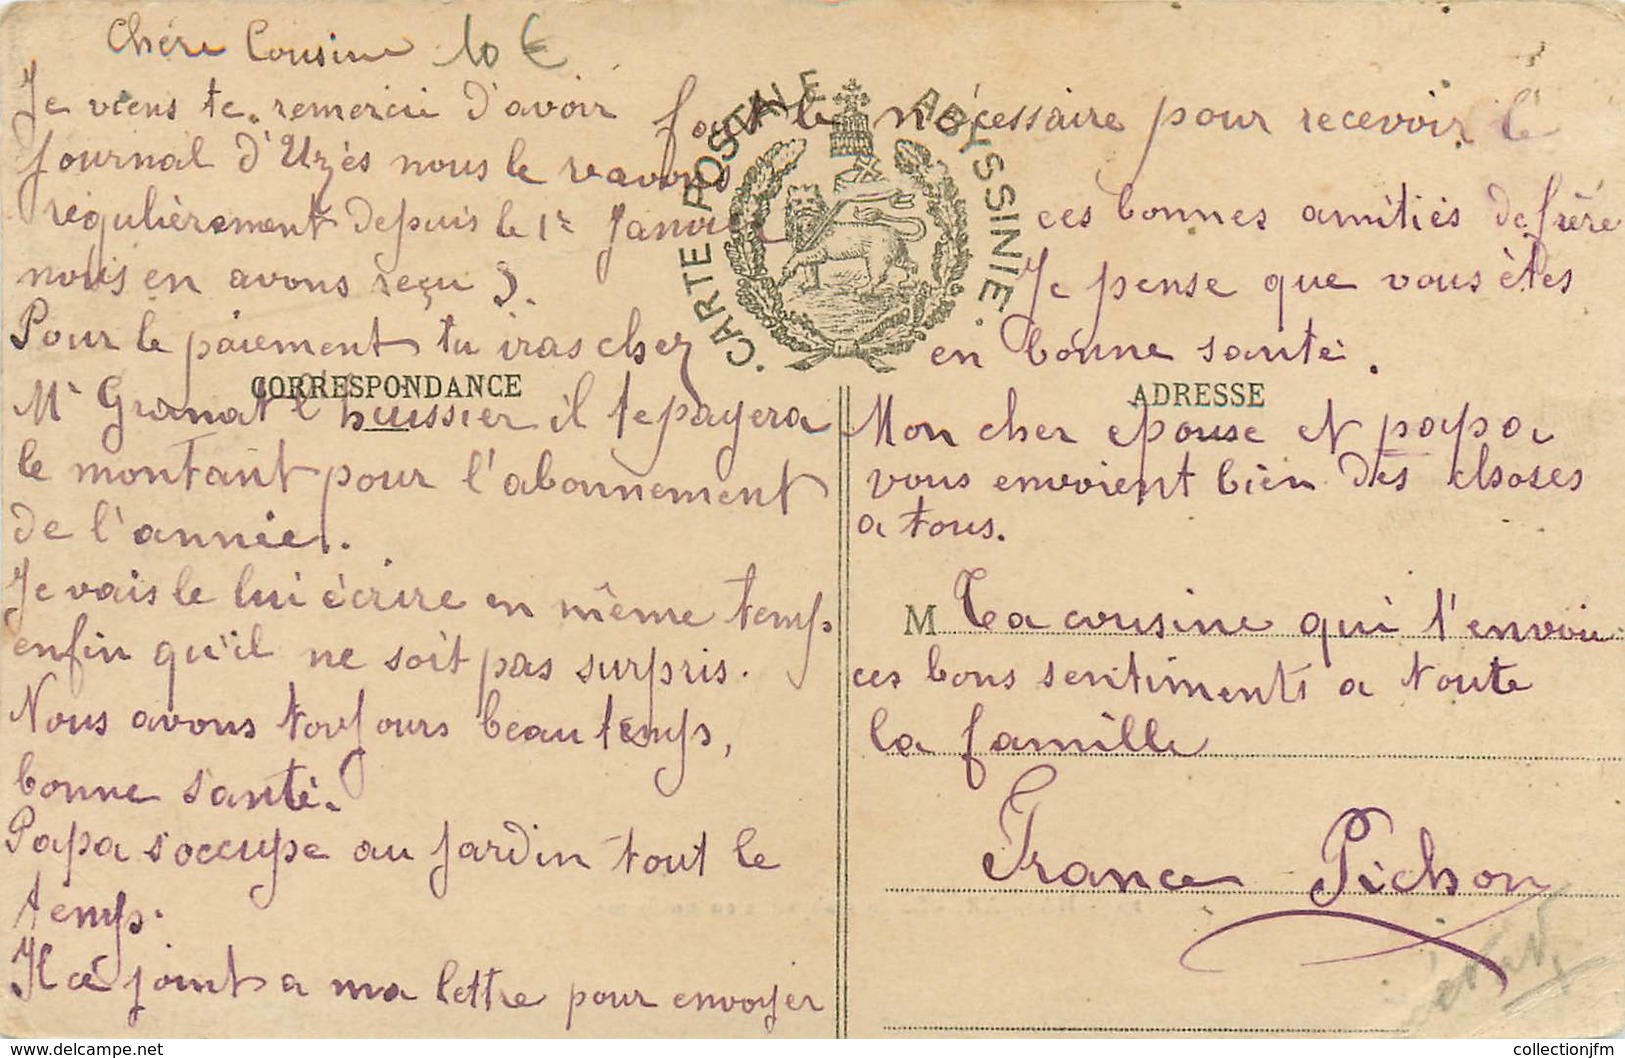 Chère Cousine 10 €
Je viens te remercie d'avoir fait le nécessaire pour recevoir le
journal d'Uzès nous le revovons
régulièrement depuis le 1er Janvier
nous en avons reçu 3.
Pour le paiement tu iras chez
CORRESPONDANCE
Mr Granat l'huissier il te payera
le montant pour l'abonnement
de l'année.
Je vais le lui écrire en même temps
enfin qu'il ne soit pas surpris.
Nous avons toujours beau temps,
bonne santé.
Papa s'occupe au jardin tout le
temps.
Il cé joint a ma lettre pour envoyer
CARTE POSTALE ABYSSINIE.
ces bonnes amitiés de frére
Je pense que vous êtes
en bonne santé.
ADRESSE
Mon cher epouse et papa
vous envoient bien des choses
a tous.
M Ta cousine qui t'envoie
ces bons sentiments a toute
la famille
France Pichon
collectionjfm